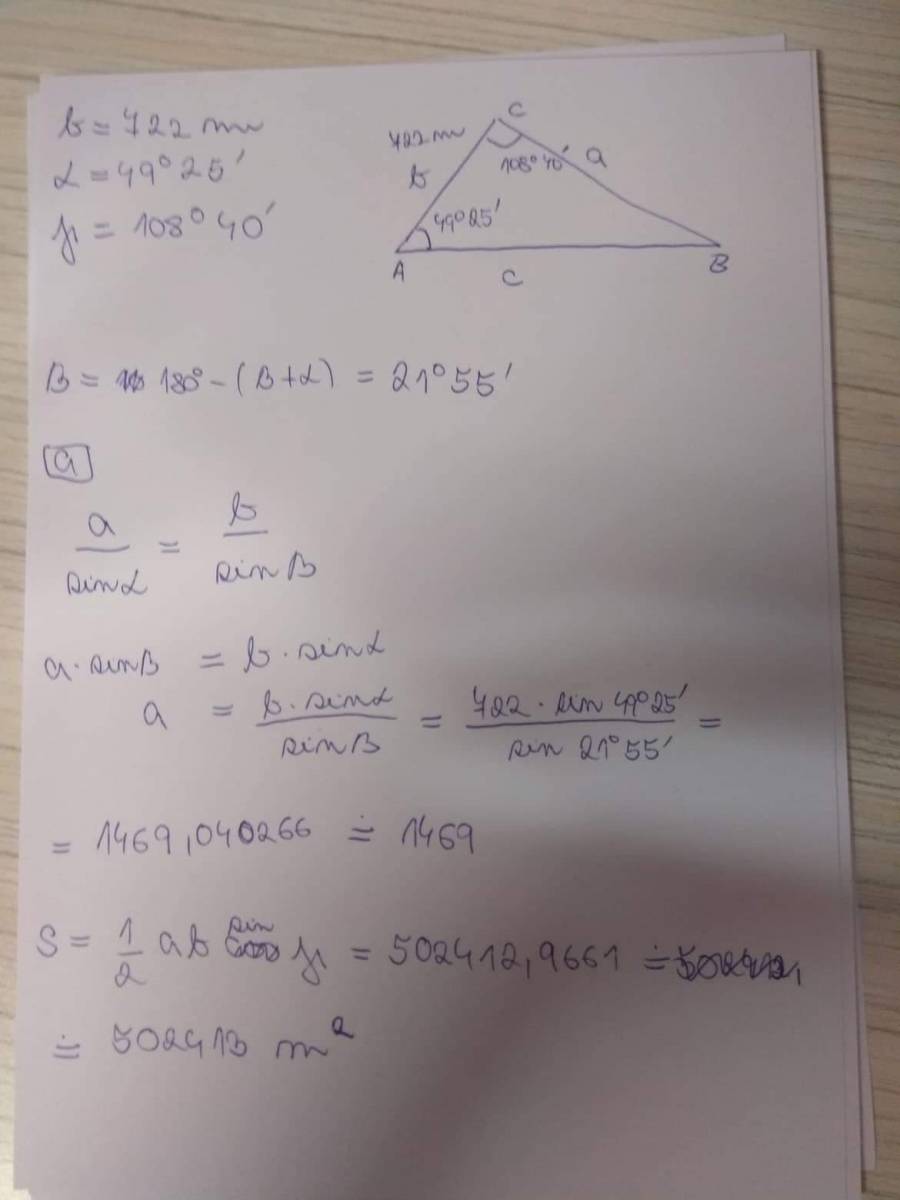 b = 722 m
α = 49° 25'
γ = 108° 40'
C
722 m
108° 40'
a
b
49° 25'
A
c
B
β = 180° - (β + α) = 21° 55'
a
a / sin α = b / sin β
a · sin β = b · sin α
a = b · sin α / sin β = 722 · sin 49° 25' / sin 21° 55' =
= 1469,040266 ≐ 1469
S = 1/2 ab sin γ = 502412,9661 ≐
≐ 502413 m²